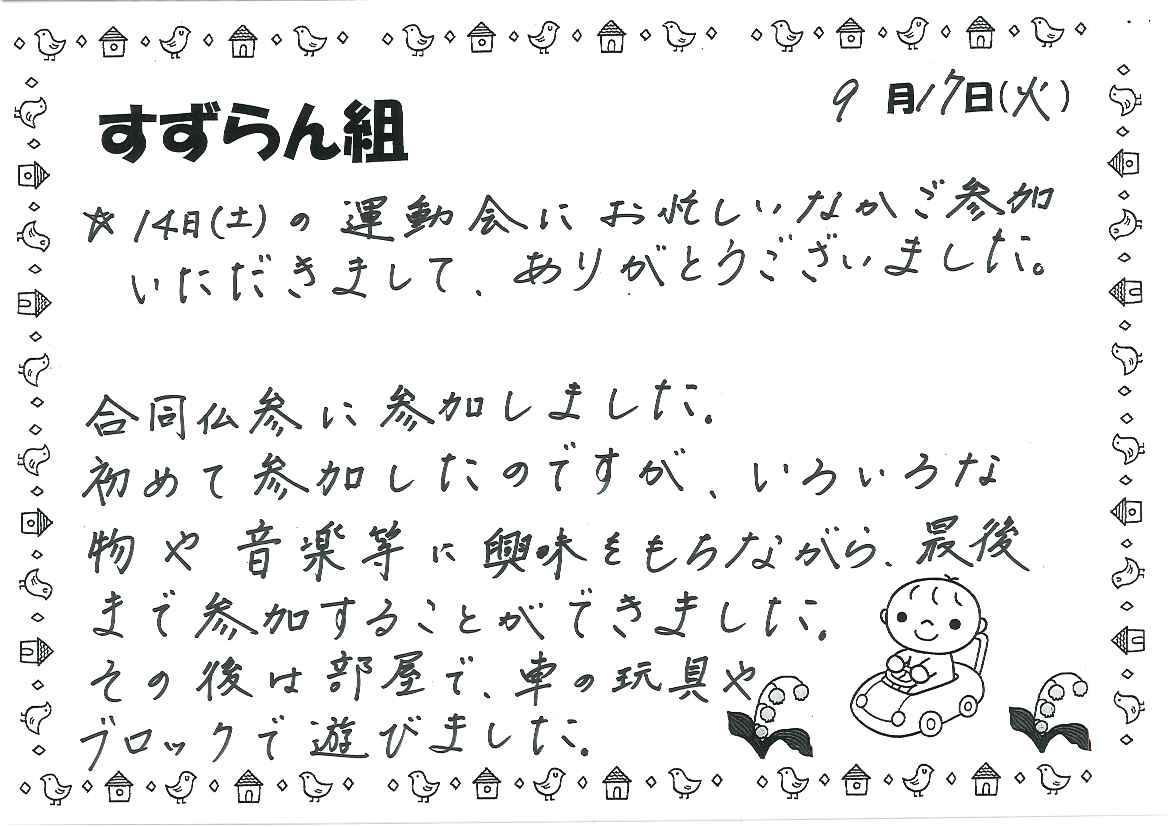 9月17日(火)
すずらん組
☆14日(土)の運動会にお忙しいなかご参加
いただきまして、ありがとうございました。
合同仏参に参加しました。
初めて参加したのですが、いろいろな
物や音楽等に興味をもちながら、最後
まで参加することができました。
その後は部屋で、車の玩具や
ブロックで遊びました。